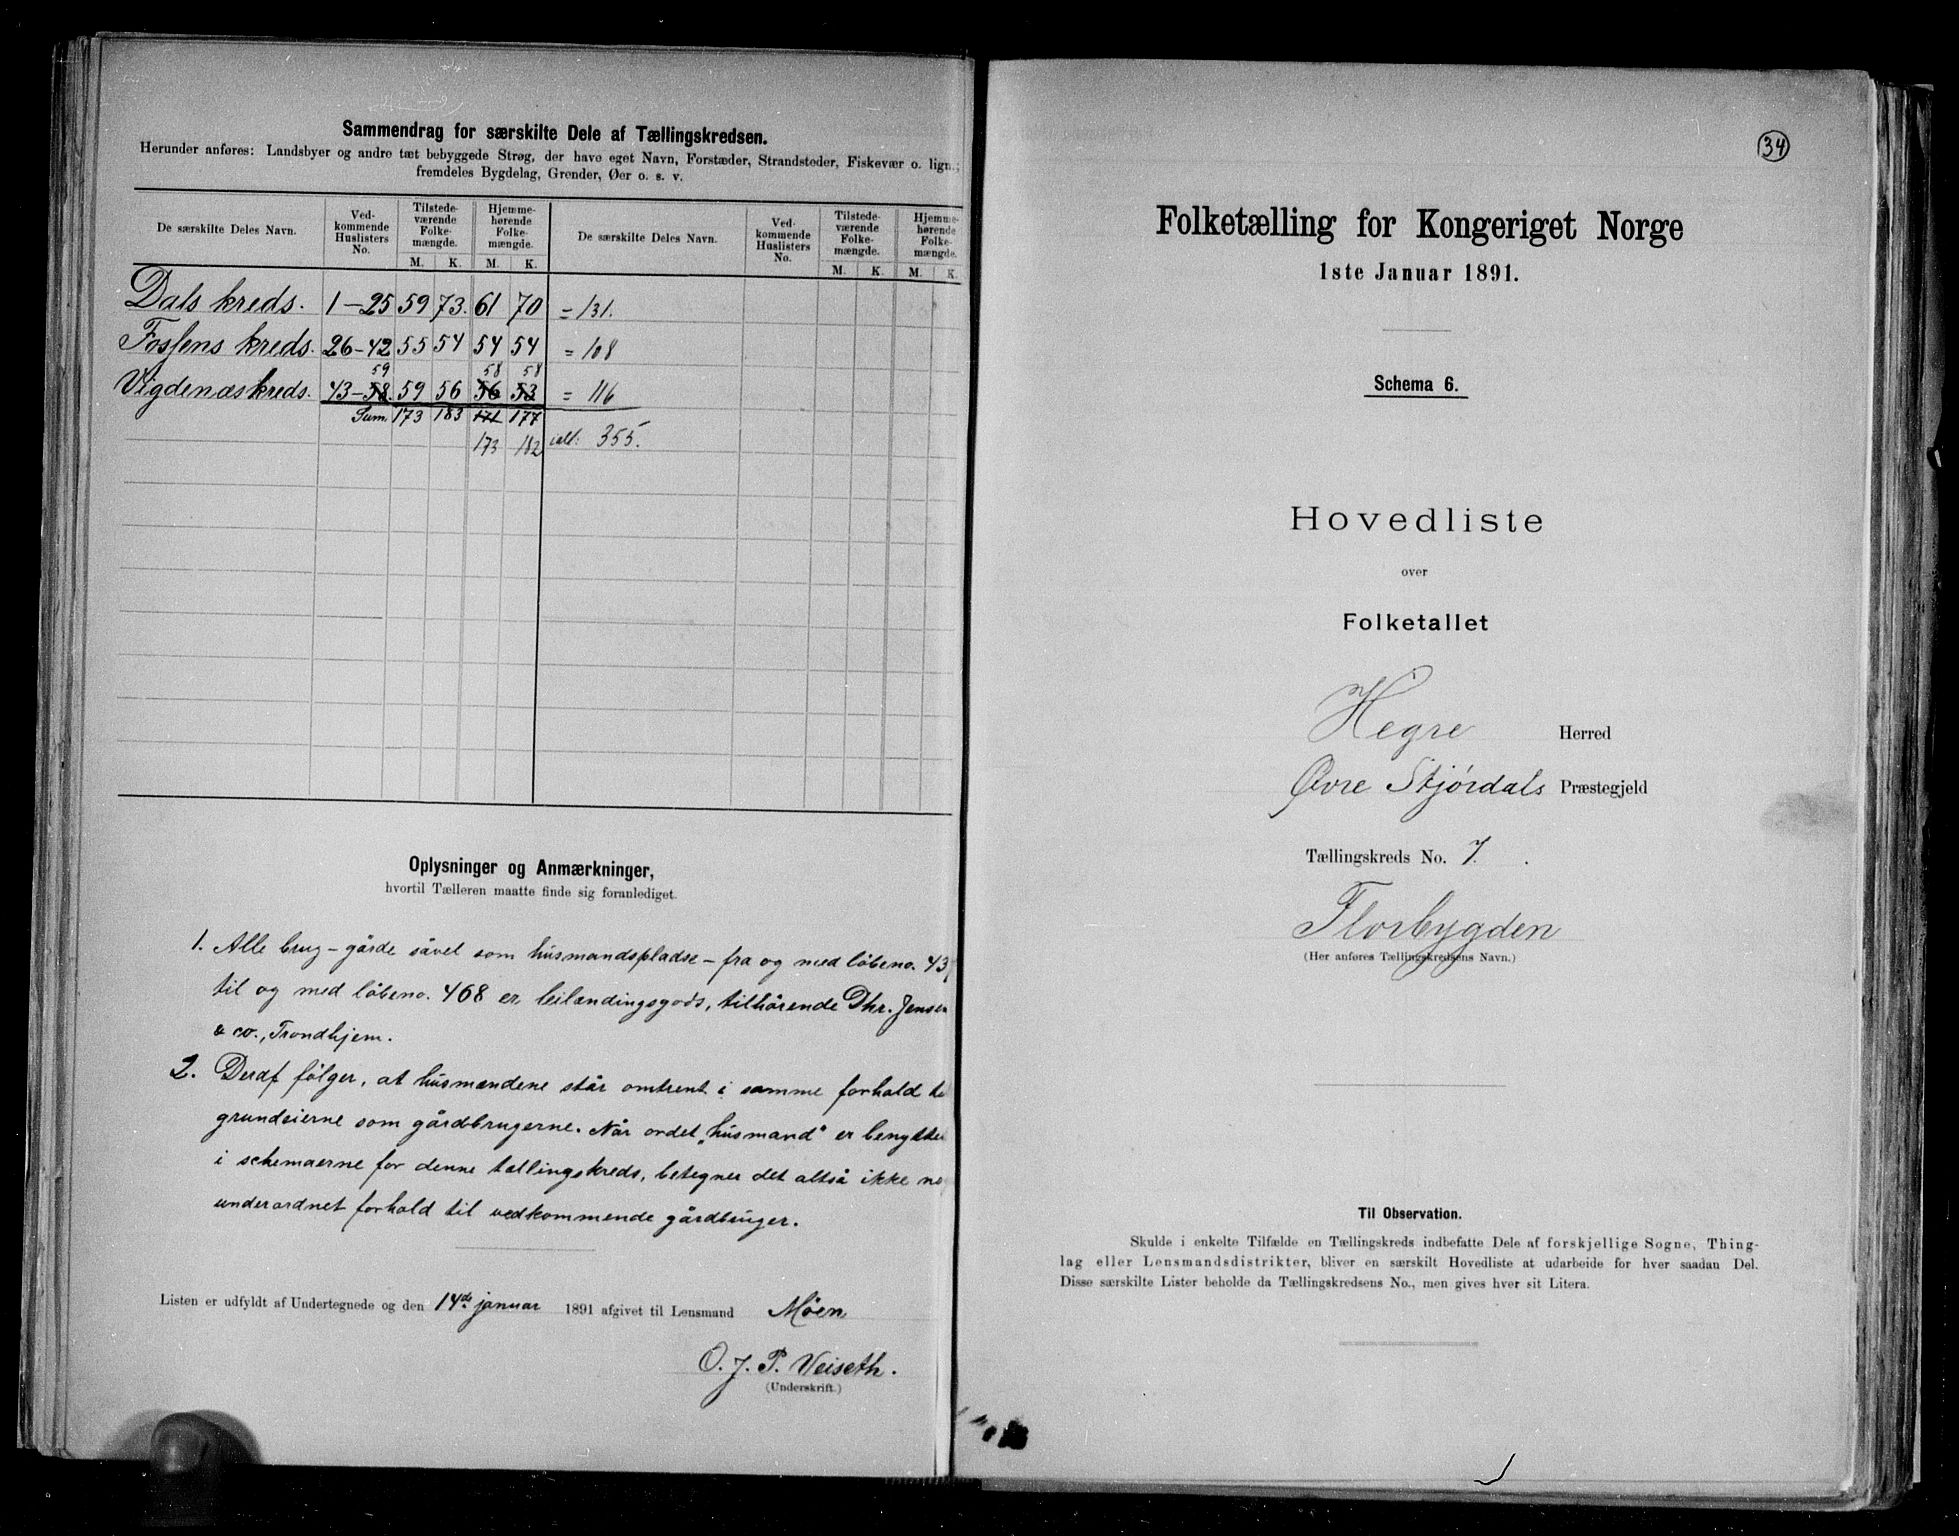 Sammendrag for særskilte Dele af Tællingskredsen.
Herunder anføres: Landsbyer og andre tæt bebyggede Strøg, der have eget Navn, Forstæder, Strandsteder, Fiskevær o. lign.;
fremdeles Bygdelag, Grender, Øer o. s. v.
De særskilte Deles Navn. Ved-kommende Huslisters No. Tilstede-værende Folke-mængde. Hjemme-hørende Folke-mængde. De særskilte Deles Navn. Ved-kommende Huslisters No. Tilstede-værende Folke-mængde. Hjemme-hørende Folke-mængde.
M. K. M. K. M. K. M. K.
Dals kreds. 1-25 59 73. 61 70 = 131.
Fossens kreds. 26-42 55 54 54 54 = 108
59 58 58
Vigdenæs kreds. 43-58. 59 56 56 53 = 116
Sum. 173 183 171 177
173 182 ialt: 355.
Oplysninger og Anmærkninger,
hvortil Tælleren maatte finde sig foranlediget.
1. Alle brug - gårde såvel som husmandspladse - fra og med løbeno. 43
til og med løbeno. 468 er leilændingsgods, tilhørende Dhr. Jensen
& co., Trondhjem.
2. Deraf følger, at husmændene står omtrent i samme forhold
grundeierne som gårdbrugerne. Når ordet „husmand" er
i schemaerne for denne tællingskreds, betegner det altså ikke
underordnet forhold til vedkommende gårdbruger.
Listen er udfyldt af Undertegnede og den 14de januar 1891 afgivet til Lensmand Møen
O. J. P. Veiseth.
(Underskrift.)
34
Folketælling for Kongeriget Norge
1ste Januar 1891.
Schema 6.
Hovedliste
over
Folketallet
Hegre Herred
Øvre Stjørdals Præstegjeld
Tællingskreds No. 7.
Florbygden
(Her anføres Tællingskredsens Navn.)
Til Observation.
Skulde i enkelte Tilfælde en Tællingskreds indbefatte Dele af forskjellige Sogne, Thing-
lag eller Lensmandsdistrikter, bliver en særskilt Hovedliste at udarbeide for hver saadan Del.
Disse særskilte Lister beholde da Tællingskredsens No., men gives hver sit Litera.